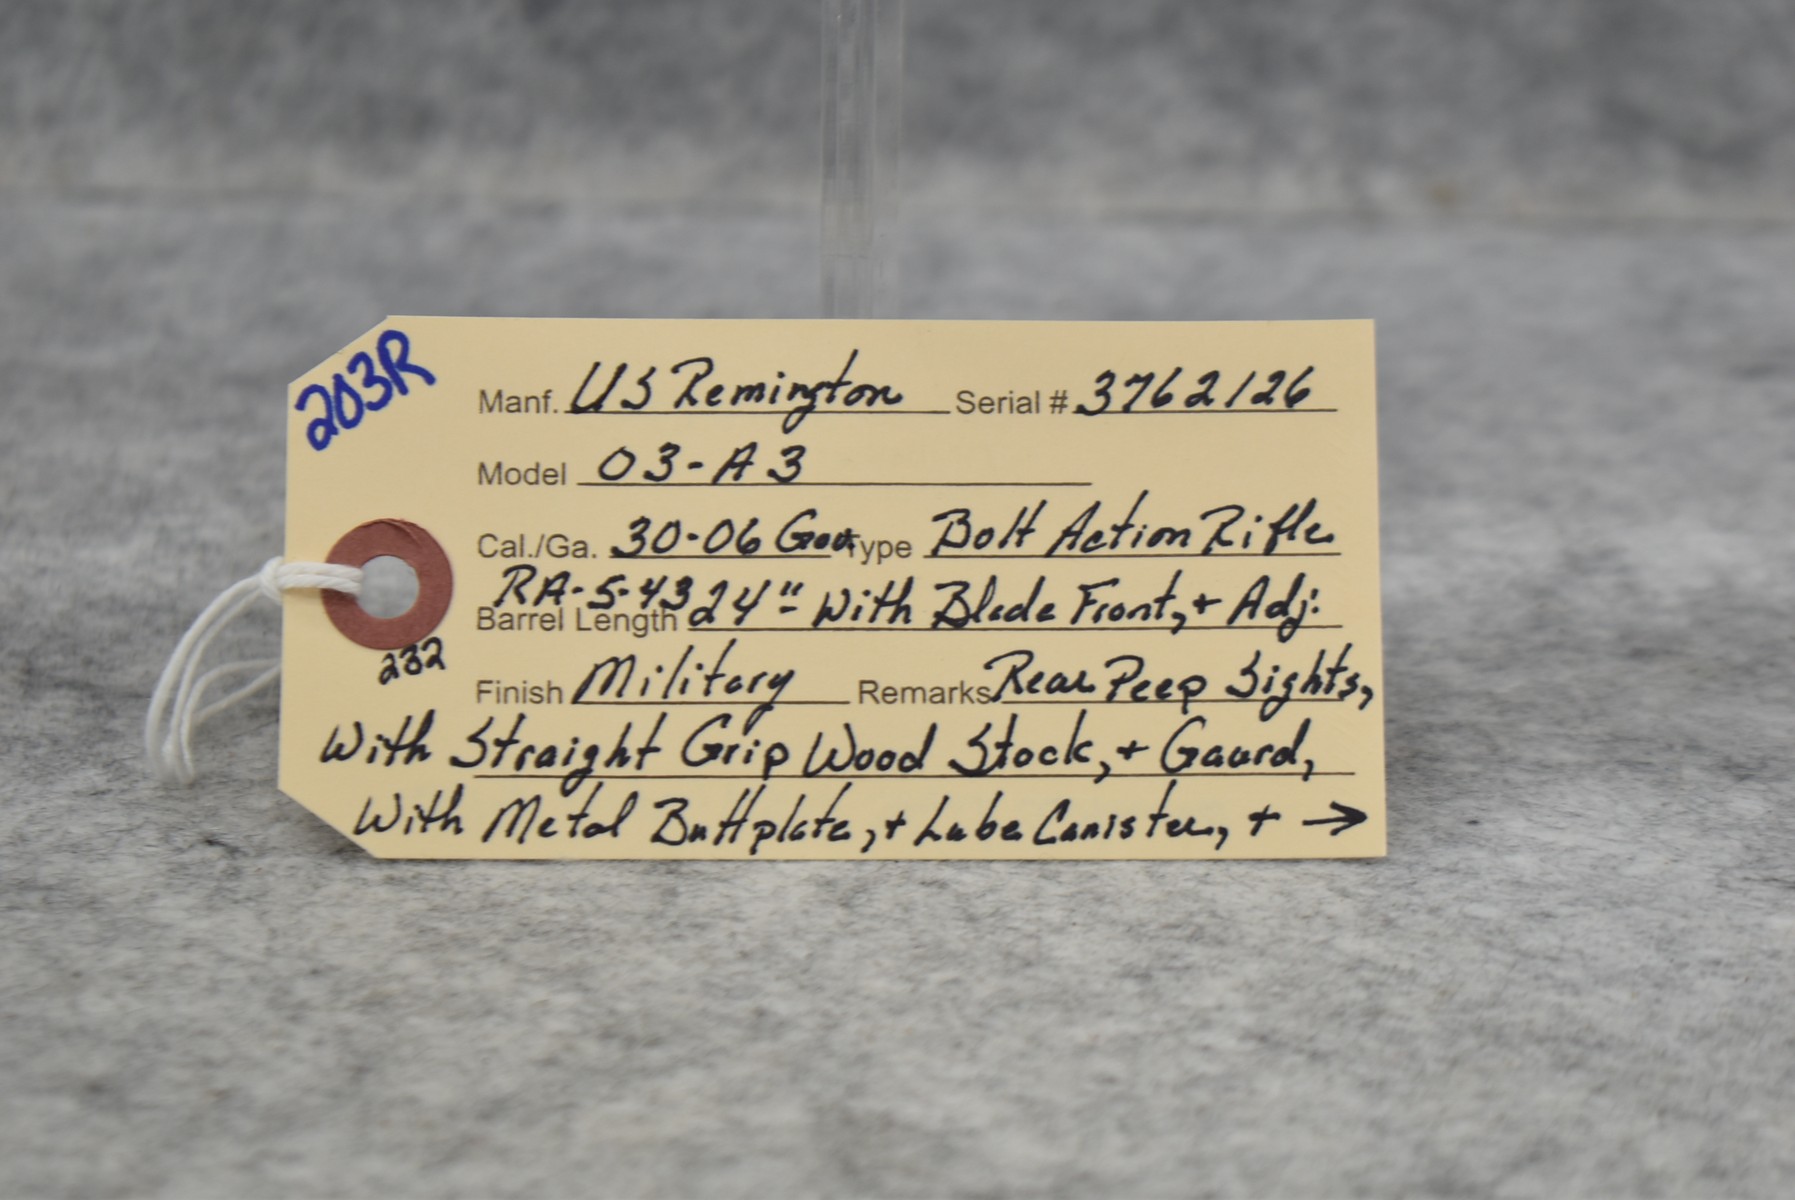 203R
Manf. US Remington Serial # 3762126
Model 03-A3
Cal./Ga. 30-06 Gov. Type Bolt Action Rifle
RA-5-43
Barrel Length 24" With Blade Front, + Adj.
232
Finish Military Remarks Rear Peep Sights,
With Straight Grip Wood Stock, + Gaurd,
With Metal Buttplate, + Lube Canister, + →